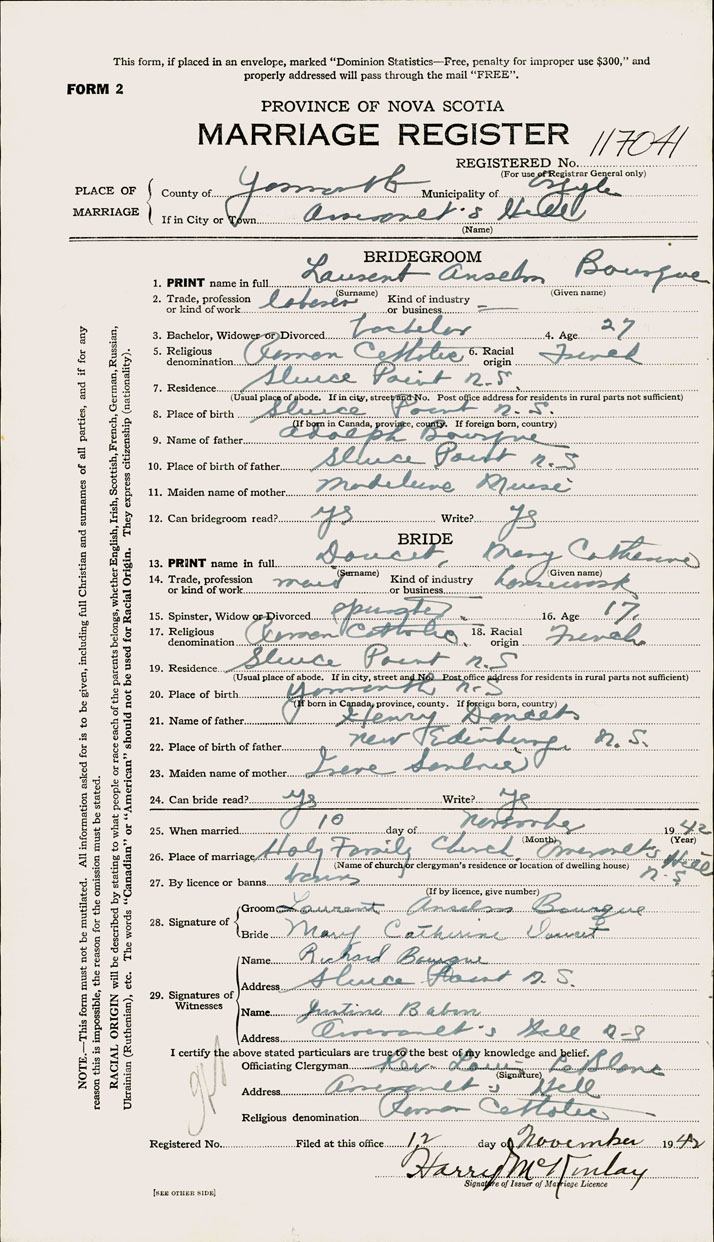 This form, if placed in an envelope, marked "Dominion Statistics—Free, penalty for improper use $300," and
properly addressed will pass through the mail "FREE".
FORM 2
PROVINCE OF NOVA SCOTIA
MARRIAGE REGISTER
117041
REGISTERED No.
(For use of Registrar General only)
PLACE OF MARRIAGE
County of Yarmouth Municipality of Argyle
If in City or Town Amerault's Hill
(Name)
BRIDEGROOM
1. PRINT name in full Laurent Anselm Bourque
(Surname) (Given name)
2. Trade, profession or kind of work laborer Kind of industry or business —
3. Bachelor, Widower or Divorced bachelor 4. Age 27
5. Religious denomination Roman Catholic 6. Racial origin French
7. Residence Sluice Point N.S.
(Usual place of abode. If in city, street and No. Post office address for residents in rural parts not sufficient)
8. Place of birth Sluice Point N.S.
(If born in Canada, province, county. If foreign born, country)
9. Name of father Adolph Bourque
10. Place of birth of father Sluice Point N.S
11. Maiden name of mother Madeleine Muise
12. Can bridegroom read? yes Write? yes
BRIDE
13. PRINT name in full Doucet, Mary Catherine
(Surname) (Given name)
14. Trade, profession or kind of work maid Kind of industry or business housework
15. Spinster, Widow or Divorced spinster 16. Age 17.
17. Religious denomination Roman Catholic 18. Racial origin French
19. Residence Sluice Point N.S
(Usual place of abode. If in city, street and No. Post office address for residents in rural parts not sufficient)
20. Place of birth Yarmouth N.S
(If born in Canada, province, county. If foreign born, country)
21. Name of father Henry Doucet
22. Place of birth of father New Edinburg, N.S.
23. Maiden name of mother Irene
24. Can bride read? yes Write? yes
25. When married 10 day of November 1942
(Month) (Year)
26. Place of marriage Holy Family Church, Amerault's Hill N.S
(Name of church or clergyman's residence or location of dwelling house)
27. By licence or banns banns
(If by licence, give number)
28. Signature of
Groom Laurent Anselm Bourque
Bride Mary Catherine Doucet
29. Signatures of Witnesses
Name Richard Bourque
Address Sluice Point N.S.
Name Justine Babin
Address Amerault's Hill N-S
I certify the above stated particulars are true to the best of my knowledge and belief.
Officiating Clergyman Rev. Louis LeBlanc
(Signature)
Address Amerault's Hill
Religious denomination Roman Catholic
Registered No. Filed at this office 12 day of November 1942
Harry McKinlay
Signature of Issuer of Marriage Licence
[SEE OTHER SIDE]
NOTE.—This form must not be mutilated. All information asked for is to be given, including full Christian and surnames of all parties, and if for any
reason this is impossible, the reason for the omission must be stated.
RACIAL ORIGIN will be described by stating to what people or race each of the parents belongs, whether English, Irish, Scottish, French, German, Russian,
Ukrainian (Ruthenian), etc. The words "Canadian" or "American" should not be used for Racial Origin. They express citizenship (nationality).